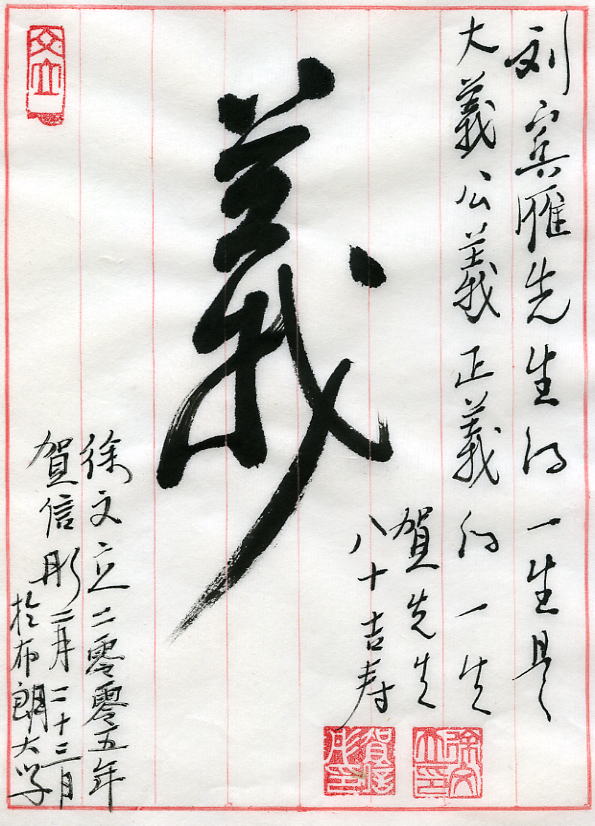 刘宾雁先生的一生是
大義公義正義的一生
賀先生
八十吉寿
義
徐文立二零零五年
賀信彤二月二十三日
於布朗大学
文立
徐文立印
賀信彤印